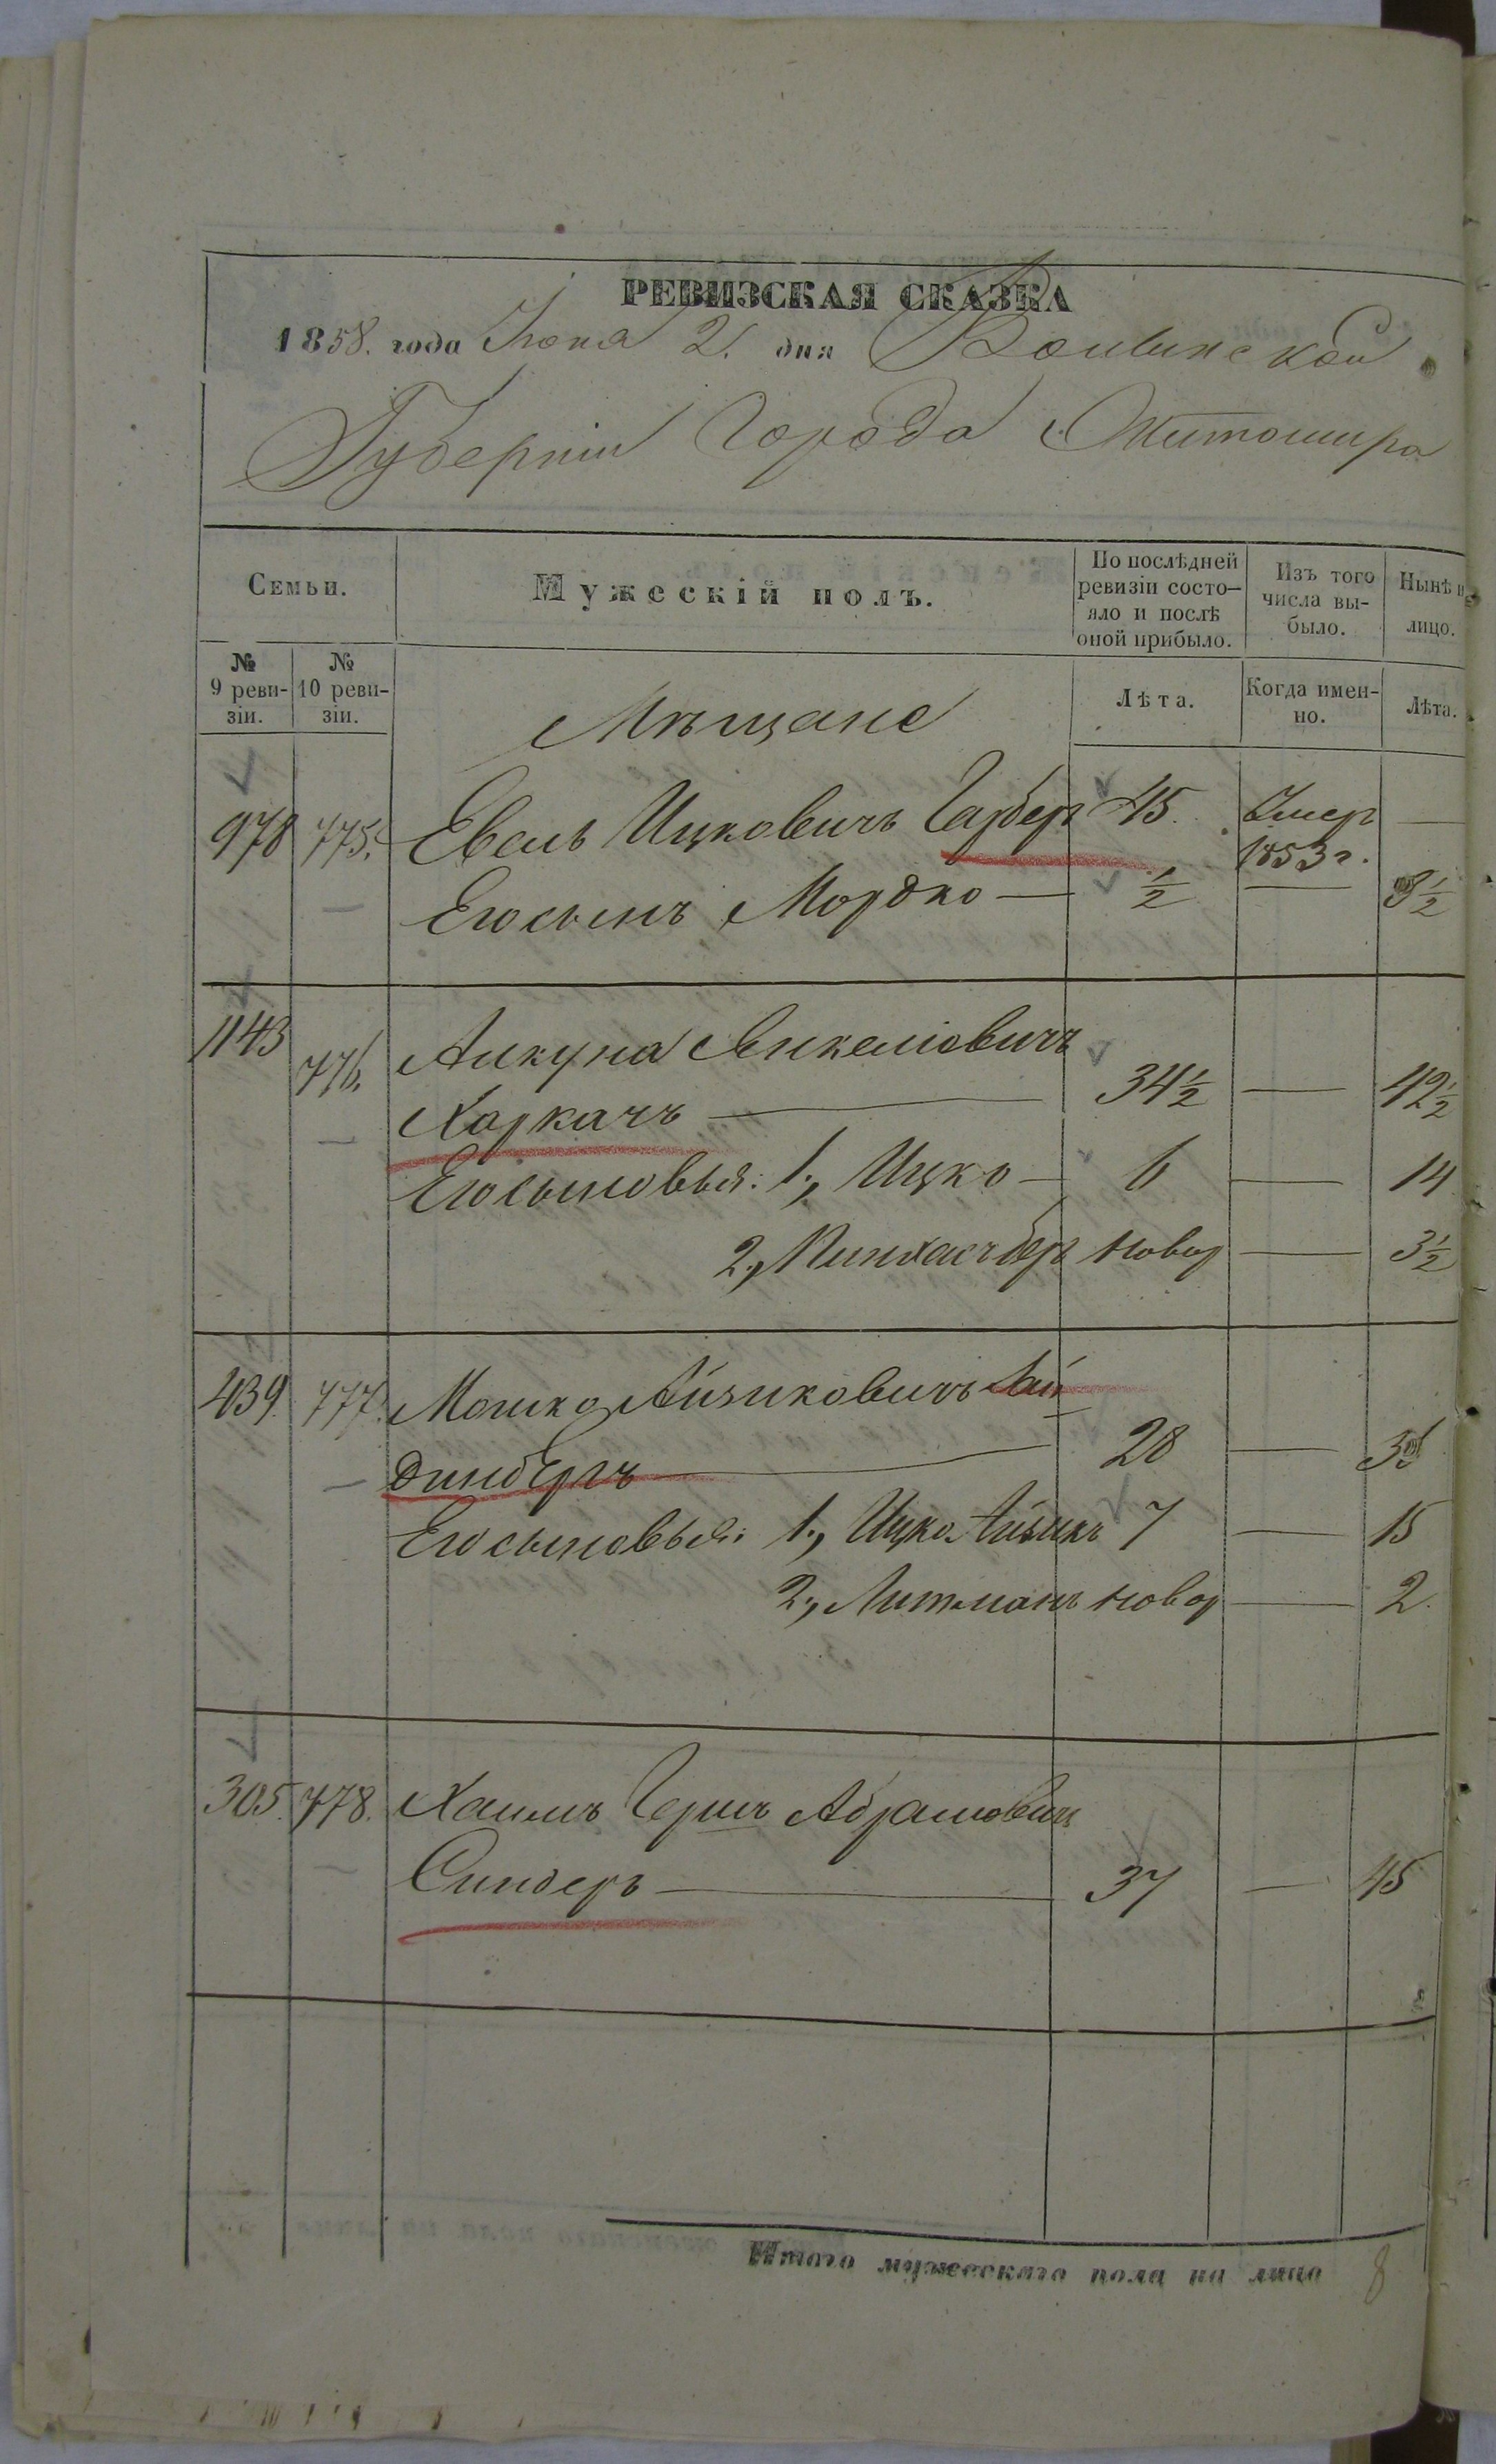 РЕВИЗСКАЯ СКАЗКА
1858. года Іюня 2. дня Волынской
Губерніи Города Житомира
Семьи.
Мужескій полъ.
По послѣдней
ревизіи состо-
яло и послѣ
оной прибыло.
Изъ того
числа вы-
было.
Нынѣ н
лицо.
№
9 реви-
зіи.
№
10 реви-
зіи.
Лѣта.
Когда имен-
но.
Лѣта.
Мѣщане
978 775. Евель Ицковичъ Гарберъ 45. Умер —
1853 г.
Его сынъ Мордко — ½ — 8½
1143 776. Янкелювичъ
Харкачъ — 34½ — 42½
Его сыновья: 1., Ицко — 6 — 14
2., Пинхасъ беръ новор — 3½
439. 777. Мошко Айзиковичъ Вай
динбергъ — 28 — 36
Его сыновья: 1., Ицко Айзикъ 7 — 15
2., Литманъ новор — 2.
305. 778. Хаимъ Гершъ Абрамович
— 37 — 45
Итого мужескаго пола на лицо 8